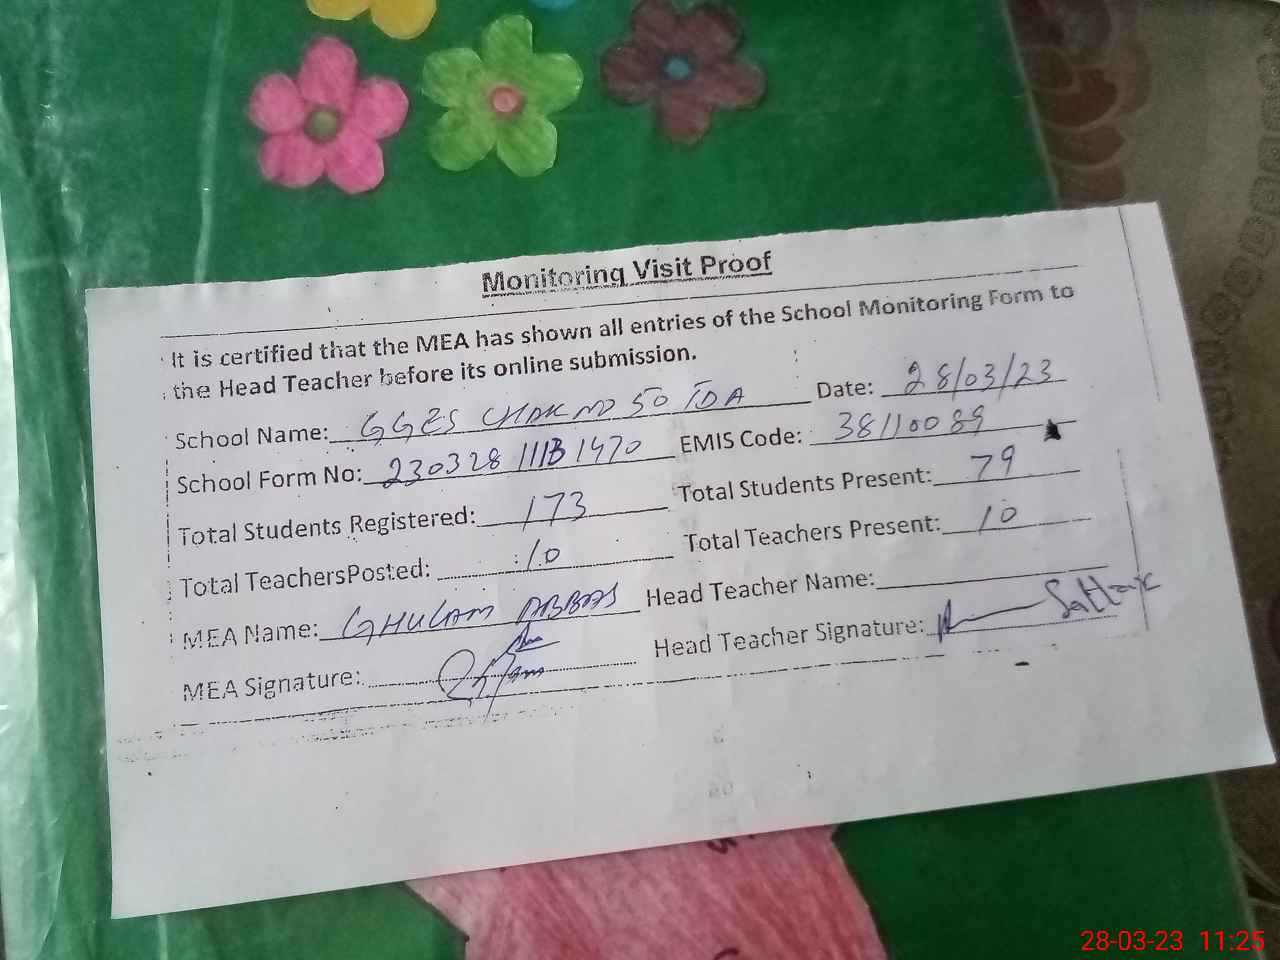 Monitoring Visit Proof
It is certified that the MEA has shown all entries of the School Monitoring Form to
the Head Teacher before its online submission.
School Name: GGES CHAK NO 50 TDA Date: 28/03/23
School Form No: 230328 111B1470 EMIS Code: 38110089
Total Students Registered: 173 Total Students Present: 79
Total TeachersPosted: 10 Total Teachers Present: 10
MEA Name: GHULAM ABBAS Head Teacher Name:
MEA Signature: Head Teacher Signature:
28-03-23 11:25